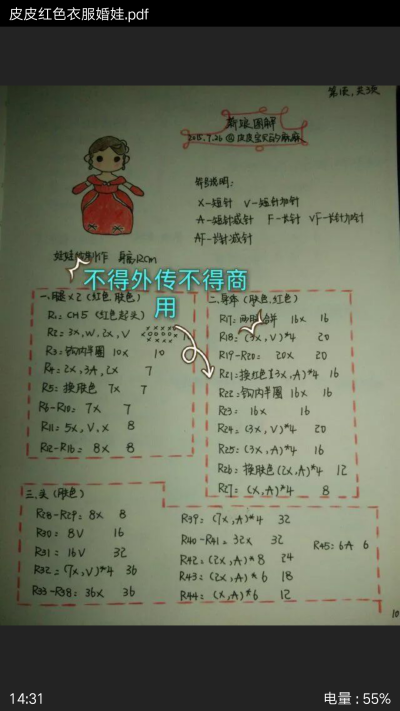 皮皮红色衣服婚娃.pdf
第1页，共3页
新娘图解
2015.7.26 @皮皮宝贝的麻麻
符号说明：
X-短针 V-短针加针
A-短针减针 F-长针 VF-长针加针
AF-长针减针
身高12cm
不得外传不得商用
一.腿×2（红色，肤色）
R1：CH5（红色起头）
R2：3X,W,2X,V
R3：钩内半圈 10X 10
R4：2X,3A,2X 7
R5：换肤色 7X 7
R6-R10：7X 7
R11：5X,V,X 8
R12-R16：8X 8
二.身体（肤色，红色）
R17：两腿合并 16X 16
R18：(3X,V)*4 20
R19-R20：20X 20
R21：换红色(3X,A)*4 16
R22：钩内半圈 16X 16
R23：16X 16
R24：(3X,V)*4 20
R25：(3X,A)*4 16
R26：换肤色(2X,A)*4 12
R27：(X,A)*4 8
三.头（肤色）
R28-R29：8X 8
R30：8V 16
R31：16V 32
R32：(7X,V)*4 36
R33-R38：36X 36
R39：(7X,A)*4 32
R40-R41：32X 32
R42：(2X,A)*8 24
R43：(2X,A)*6 18
R44：(X,A)*6 12
R45：6A 6
10
14:31
电量：55%